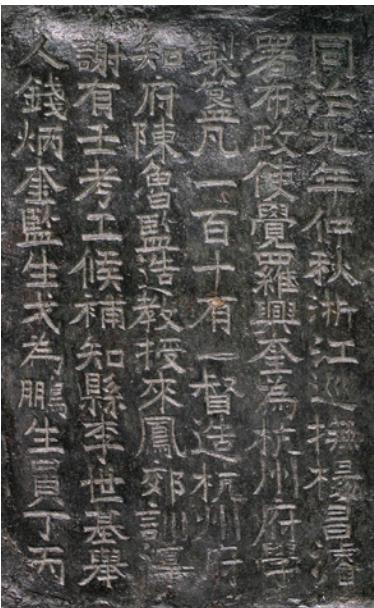 同治九年仲秋浙江巡撫楊昌濬
署布政使覺羅興奎為杭州府學
製簋凡一百十有一督造杭州府
知府陳魯監造教授來鳳郊訓導
謝有壬考工候補知縣李世基舉
人錢炳奎監生弋為鵬生員丁丙